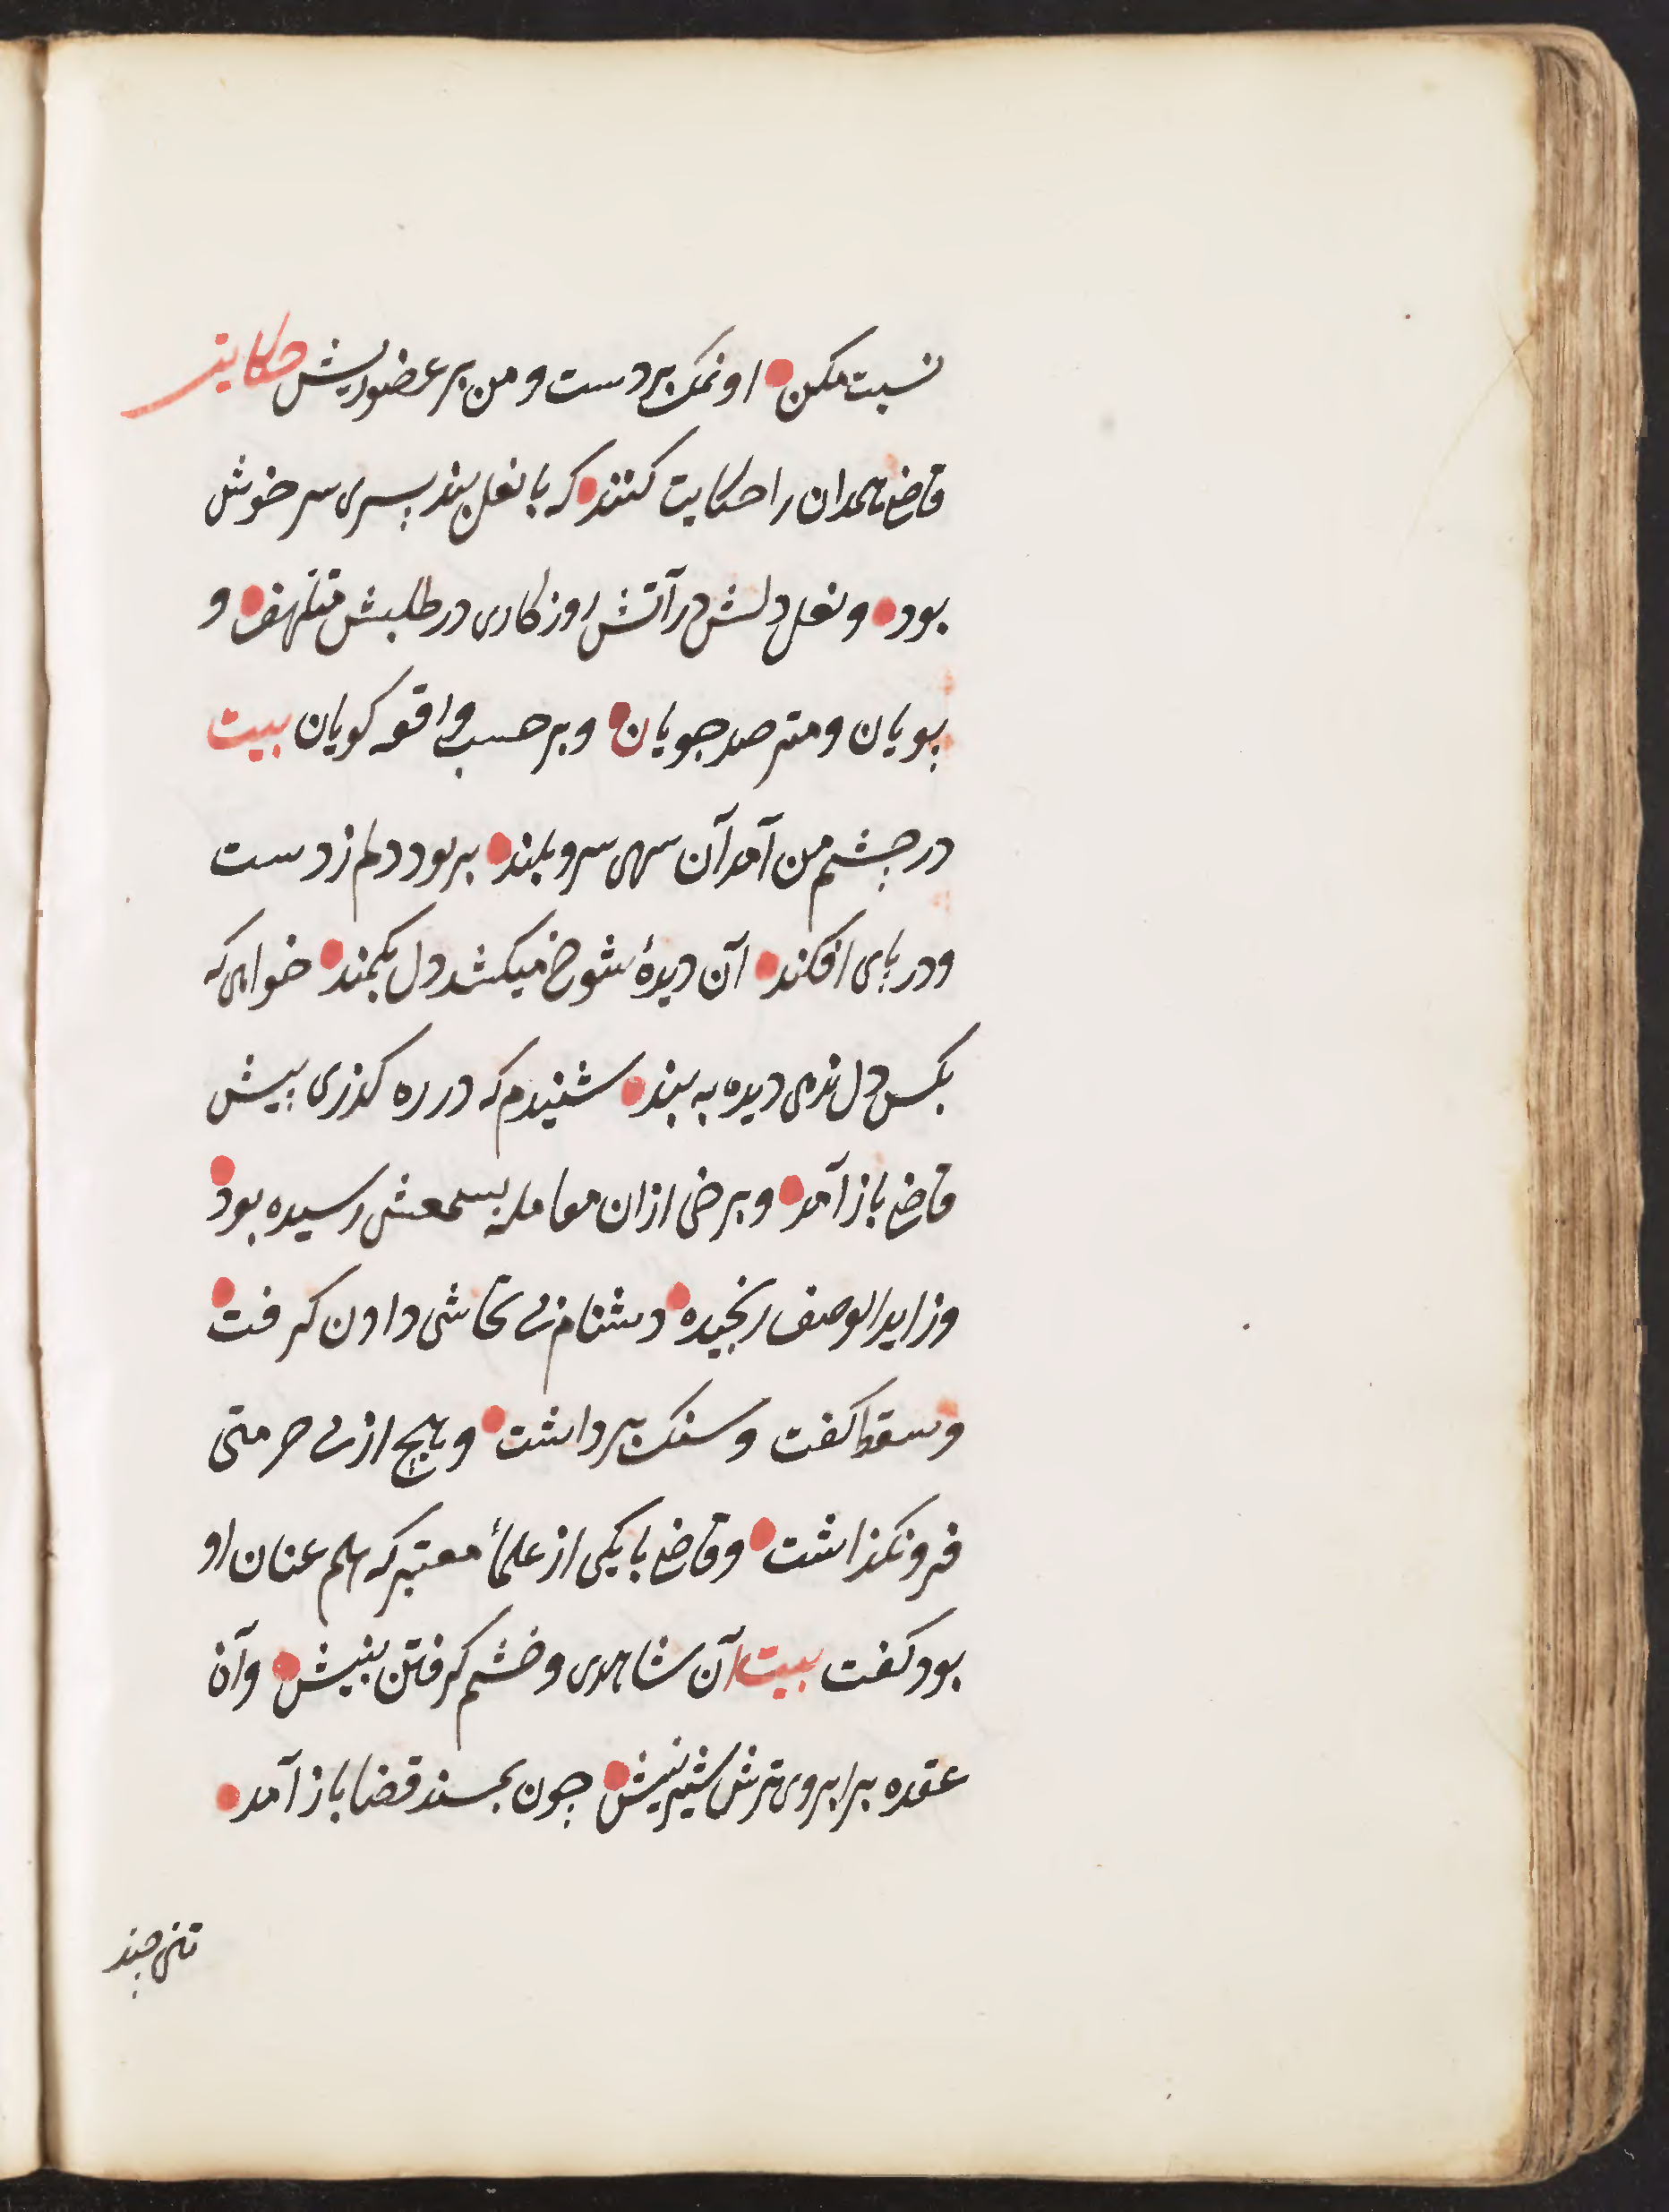 نسبت مکن او نمک بر دست و من بر عضو ریش حکایت
قاضئ همدان را حکایت کنند که با نعل بند پسری سر خوش
بود و نعل دلش در آتش روزکاری در طلبش متلهف و
پویان و مترصد جویان و بر حسب واقعه کویان بیت
در چشم من آمد آن سهی سرو بلند بربود دلم ز دست
و در پای افکند آن دیدهٔ شوخ میکشد دل بکمند خواهی که
بکس دل ندهی دیده به بند شنیدم که در ره کذری پیش
قاضی باز آمد و برخی ازان معامله بسمعش رسیده بود
و زاید الوصف رنجیده دشنام بی تحاشی دادن کرفت
و سقط کفت و سنک برداشت و هیچ از بی حرمتی
فرو نکذاشت و قاضی با یکی از علمأ معتبر که هم عنان او
بود کفت بیت آن شاهدی و خشم کرفتن بینش و آن
عقده بر ابروی ترش شیرینش چون بمسند قضا باز آمد
تنی چند